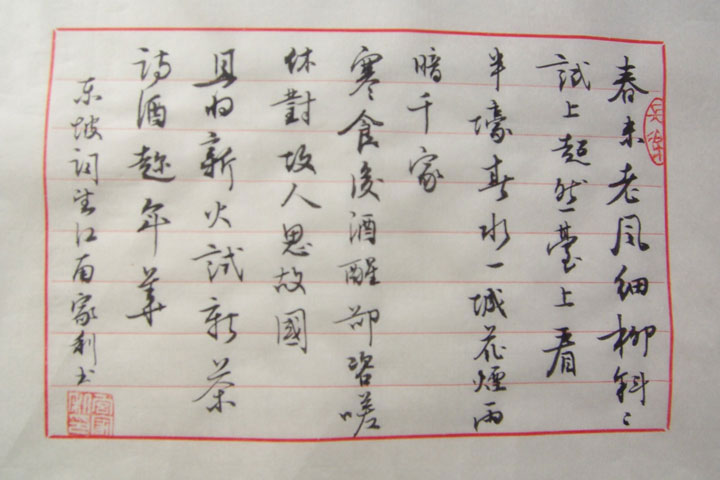 春未老風細柳斜〻
試上超然臺上看
半壕春水一城花煙雨
暗千家
寒食後酒醒卻咨嗟
休對故人思故國
且将新火試新茶
詩酒趁年華
东坡词望江南家利书